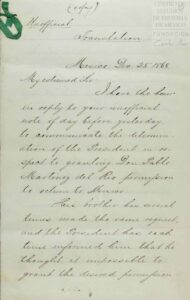 (copy)
Unofficial
Translation
Mexico Dec. 25 1868
My esteemed Sir
I have the honor
in reply to your unofficial
note of day before yesterday
to communicate the determin-
ation of the President in re-
spect to granting Don Pablo
Martinez del Rio permission
to return to Mexico
His brother has several
times made the same request,
and the President has each
time informed him that he
thought it impossible to
grant the desired permission
CENTRO DE
ESTUDIOS DE
HISTORIA DE
MEXICO
FUNDACION